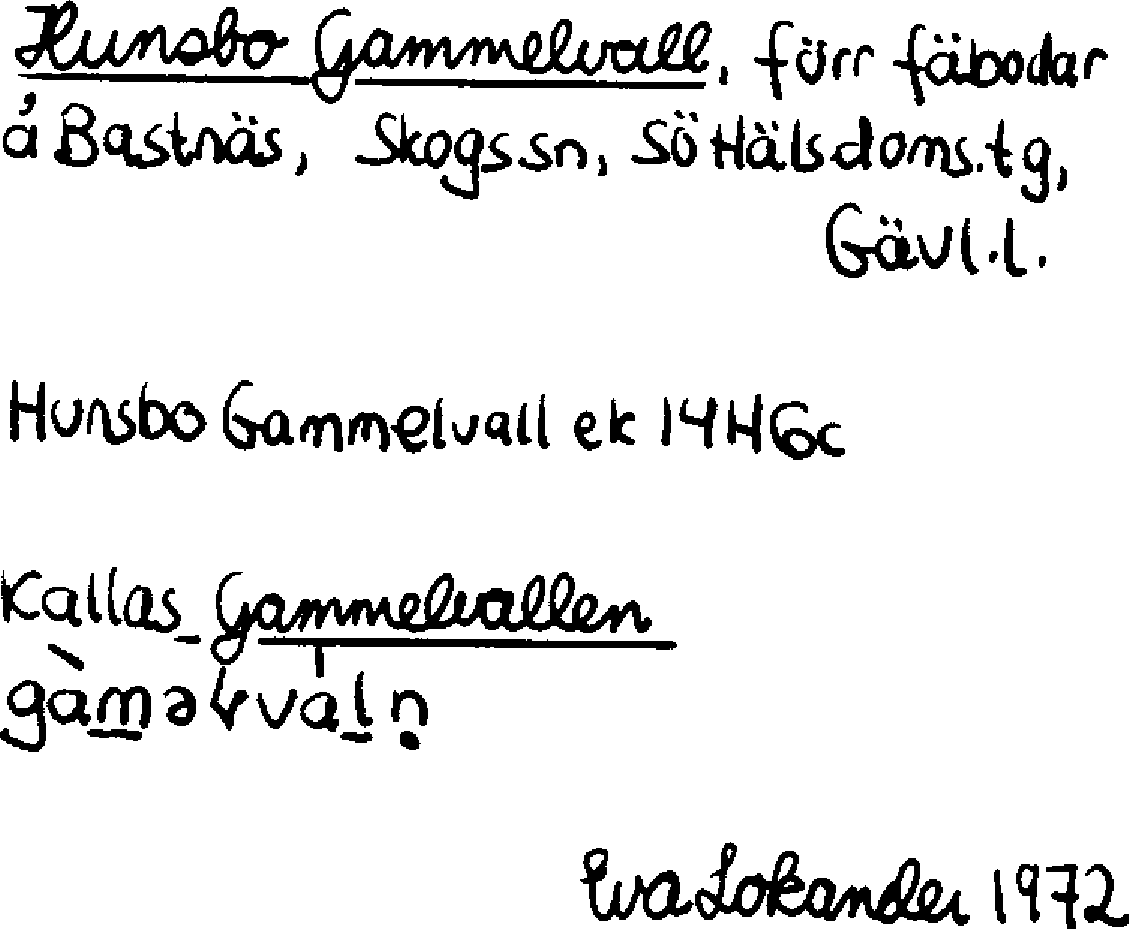 Hunsbo Gammelvall, förr fäbodar
å Bastnäs, Skogs sn, Sö Häls doms.tg,
Gävl.l.
Hunsbo Gammelvall ek 14H6c
Kallas Gammelvallen
Eva Lokander 1972